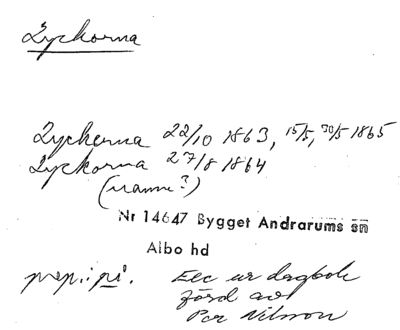 Lyckorna
Lyckerna 22/10 1863, 15/5, 30/5 1865
Lyckorna 27/8 1864
(namn?)
Nr 14647 Bygget Andrarums sn
Albo hd
prep.: på.
Exc ur dagbok
förd av
Per Nilsson